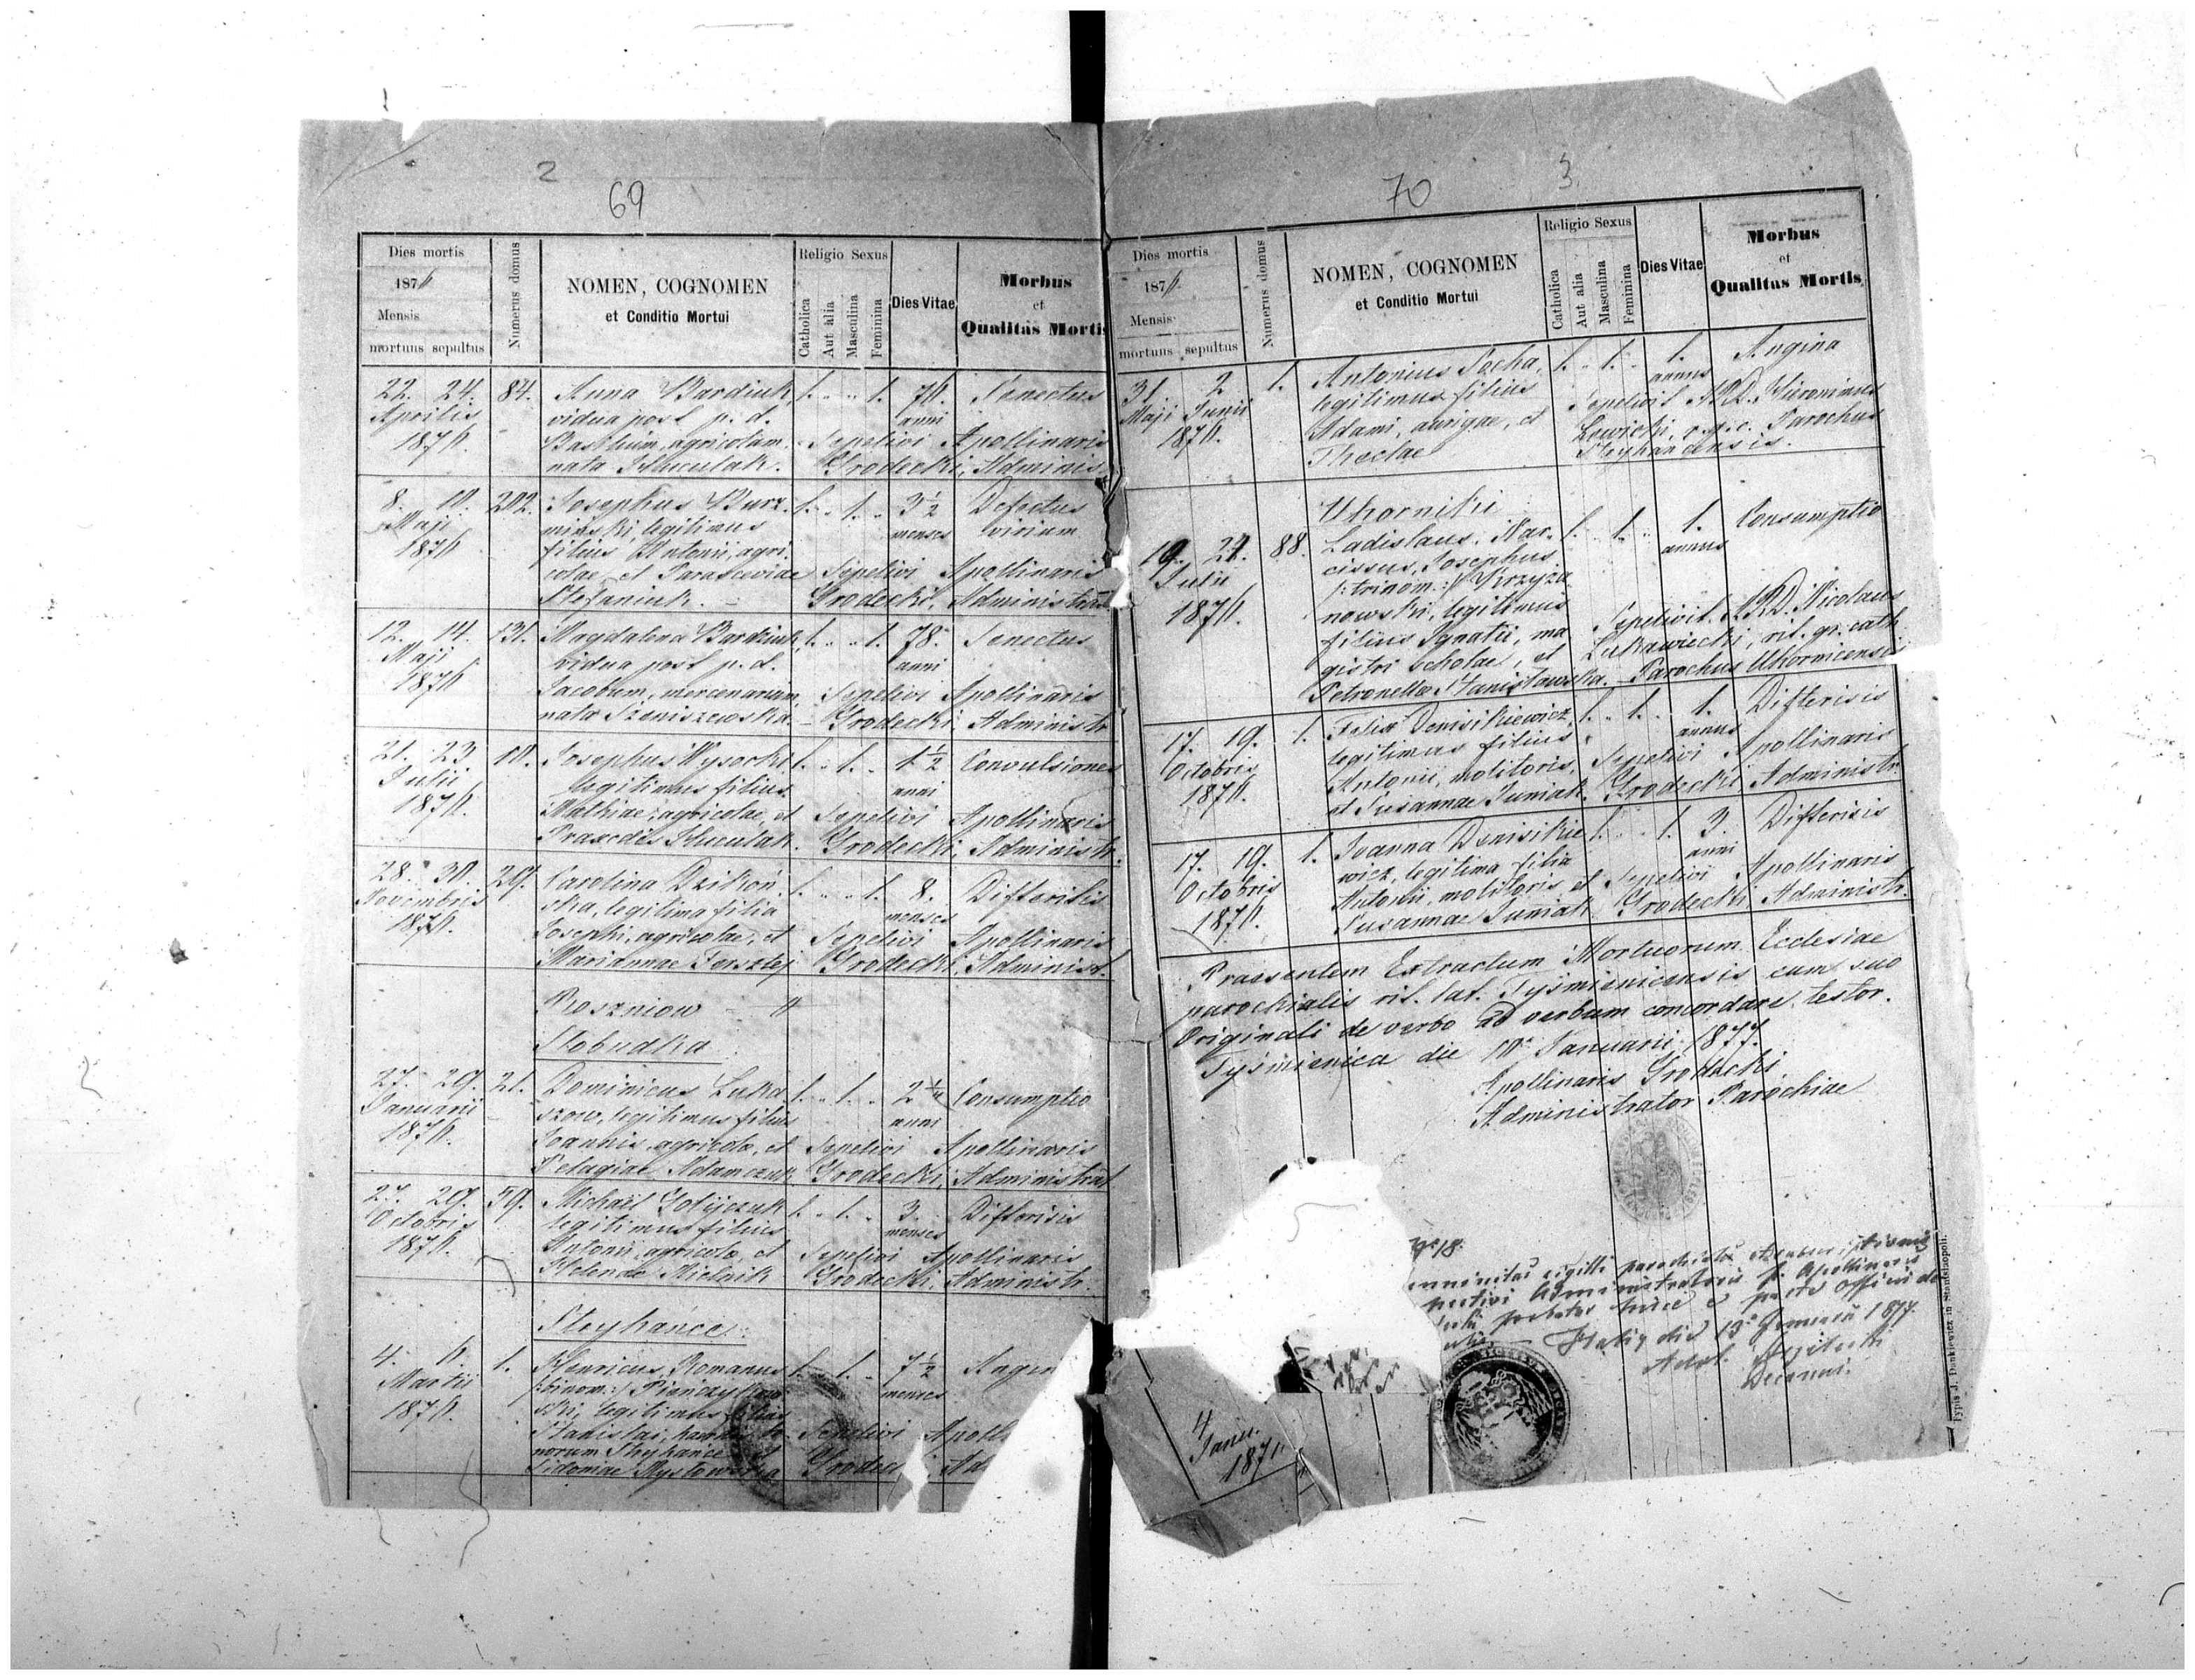 2
69
Dies mortis
1876
Mensis
mortuus sepultus
Numerus domus
NOMEN, COGNOMEN
et Conditio Mortui
Religio Sexus
Catholica
Aut alia
Masculina
Feminina
Dies Vitae
Morbus
et
Qualitas Mortis
22. 24. 84. Anna Bardiuk, 1. " " 1. 76. Senectus
Aprilis vidua post p. d. anni
1876. Basilium, agricolam, Sepelivi Apollinaris
nata Huculak. Grodecki, Adminis
8. 10. 202. Josephus Burz- 1. " 1. " 3 1/2 Defectus
Maji miński, legitimus menses virium
1876 filius Antonii, agri-
colae, et Parasceviae Sepelivi Apollinaris
Stefaniuk. – Grodecki, Administra
12. 14. 131. Magdalena Bardziuk, 1. " " 1. 78. Senectus
Maji vidua post p. d. anni
1876 Jacobum, mercenarium, Sepelivi Apollinaris
nata Szeniszewska. – Grodecki, Administr
21. 23 10. Josephus Wysocki, 1. " 1. " 1 1/2 Convulsiones
Julii legitimus filius anni
1876. Mathiae, agricolae, et Sepelivi Apollinaris
Praxedis Huculak. Grodecki, Administr.
28. 30. 29. Carolina Dzikoń- 1. " " 1. 8. Difterisis
Novembris ska, legitima filia menses
1876. Josephi, agricolae, et Sepelivi Apollinaris
Mariannae Grodecki, Administ.
Roszniow – 0
Slobudka
27. 29. 21. Dominicus Luka- 1. " 1. " 2 1/4 Consumptio
Januarii szow, legitimus filius anni
1876. Joannis, agricolae, et Sepelivi Apollinaris
Pelagiae Adamczuk Grodecki, Administrat
27. 29. 59. Michaël Gotijczuk 1. " 1. " 3. Difterisis
Octobris legitimus filius menses
1876. Antonii, agricolae, et Sepelivi Apollinaris
Helenae Mielnik Grodecki, Administr.
Steyhańce.
4. 6. 1. Henricus, Romanus 1. " 1. " 7 1/2 Angin
Martii /:binom:/ menses
1876. ski, legitimus filius
Stanislai, Sepelivi Apoll
norum Steyhańce et Grodec Ad
Sidoniae
3.
70
Dies mortis
1876.
Mensis
mortuus sepultus
Numerus domus
NOMEN, COGNOMEN
et Conditio Mortui
Religio Sexus
Catholica
Aut alia
Masculina
Feminina
Dies Vitae
Morbus
et
Qualitas Mortis
31 2 1. Antonius Socha, 1. " 1. " 1. Angina
Maji Junii legitimus filius annus
1876. Adami, aurigae, et Sepelivit A.R.D. Hieronimus
Theclae Lewicki, r. gr. c. Parochus
Steyhancensis.
Uhorniki
19. 21. 88. Ladislaus, Nar- 1. " 1. " 1. Consumptio
Julii cissus, Josephus annus
1876. /:trinom:/ Krzyża-
nowski, legitimus
filius Ignatii, ma- Sepelivit A.R.D. Nicolaus
gistri scholae, et Łukawiecki, rit. gr. cath.
Petronellae Stanisławska. – Parochus Uhornicensis
17. 19. 1. Felix Denisikiewicz, 1. " 1. " 1. Difterisis
Octobris legitimus filius annus
1876. Antonii, molitoris, Sepelivi Apollinaris
et Susannae Juniak. Grodecki, Administr.
17. 19. 1. Joanna Denisikie- 1. " " 1. 3. Difterisis
Octobris wicz, legitima filia anni
1876. Antonii, molitoris, et Sepelivi Apollinaris
Susannae Juniak Grodecki Administr.
Praesentem Extractum Mortuorum Ecclesiae
parochialis rit. lat. Tyśmienicensis cum suo
Originali de verbo ad verbum concordare testor.
Tyśmienica die 10 Januarii 1877.
Apollinaris Grodecki
Administrator Parochiae
No 18.
sigilli parochialis et
Administratoris P. Apollinaris
die 13 Januarii 1877.
Decanus.
4
Janu.
1876
Typis J. Dankiewicz in Stanislaopoli.